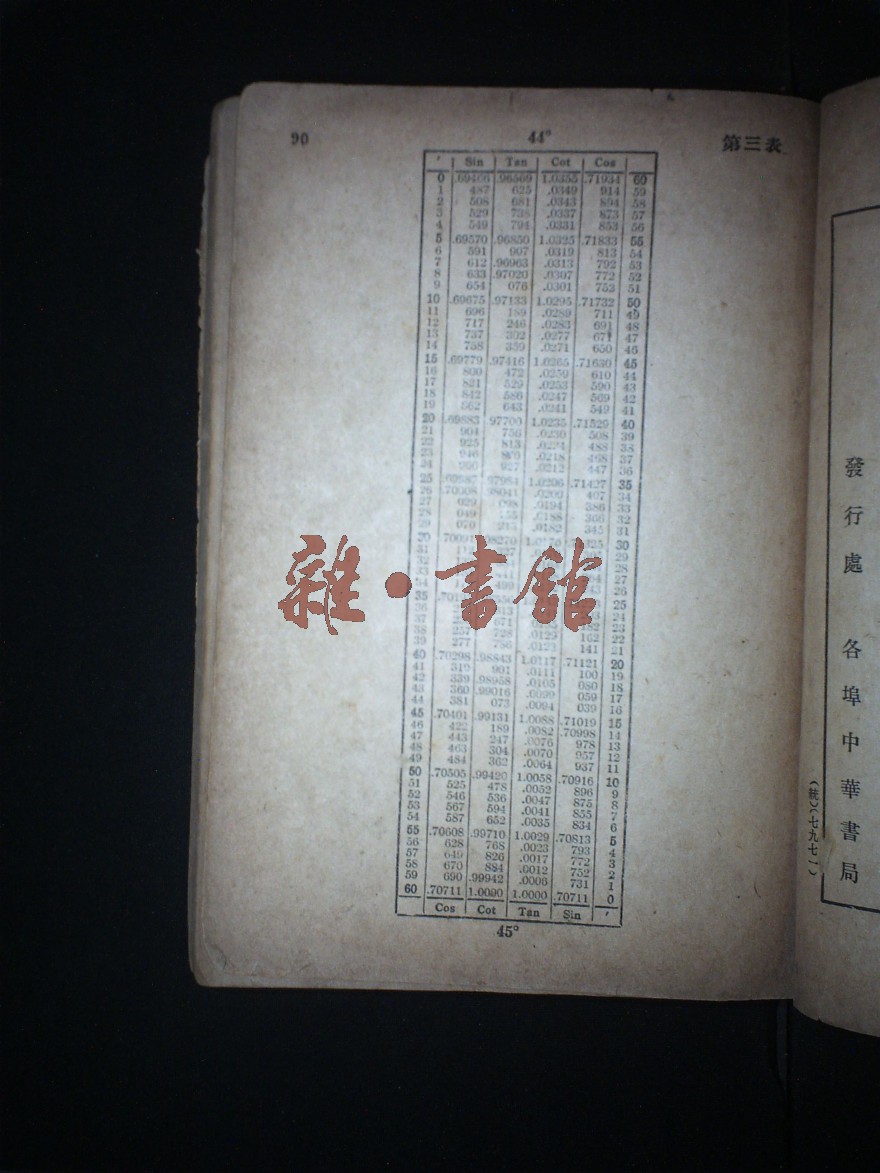 90 44° 第三表
′ Sin Tan Cot Cos
0 .69466 .96569 1.0355 .71934 60
1 487 625 .0349 914 59
2 508 681 .0343 894 58
3 529 738 .0337 873 57
4 549 794 .0331 853 56
5 .69570 .96850 1.0325 .71833 55
6 591 907 .0319 813 54
7 612 .96963 .0313 792 53
8 633 .97020 .0307 772 52
9 654 076 .0301 752 51
10 .69675 .97133 1.0295 .71732 50
11 696 189 .0289 711 49
12 717 246 .0283 691 48
13 737 302 .0277 671 47
14 758 359 .0271 650 46
15 .69779 .97416 1.0265 .71630 45
16 800 472 .0259 610 44
17 821 529 .0253 590 43
18 842 586 .0247 569 42
19 862 643 .0241 549 41
20 .69883 .97700 1.0235 .71529 40
21 904 756 .0230 508 39
22 925 813 .0224 488 38
23 946 870 .0218 468 37
24 927 .0212 447 36
25 1.0206 .71427 35
26 .0200 407 34
27 .0194 386 33
28 049 .0188 366 32
29 070 .0182 345 31
30
29
28
27
26
35 25
36 24
37 671 23
38 257 728 .0129 162 22
39 277 786 .0123 141 21
40 .70298 .98843 1.0117 .71121 20
41 319 901 .0111 100 19
42 339 .98958 .0105 080 18
43 360 .99016 .0099 059 17
44 381 073 .0094 039 16
45 .70401 .99131 1.0088 .71019 15
46 422 189 .0082 .70998 14
47 443 247 .0076 978 13
48 463 304 .0070 957 12
49 484 362 .0064 937 11
50 .70505 .99420 1.0058 .70916 10
51 525 478 .0052 896 9
52 546 536 .0047 875 8
53 567 594 .0041 855 7
54 587 652 .0035 834 6
55 .70608 .99710 1.0029 .70813 5
56 628 768 .0023 793 4
57 649 826 .0017 772 3
58 670 884 .0012 752 2
59 690 .99942 .0006 731 1
60 .70711 1.0000 1.0000 .70711 0
Cos Cot Tan Sin ′
45°
雜·書館
發行處 各埠中華書局
(統)(七九七一)